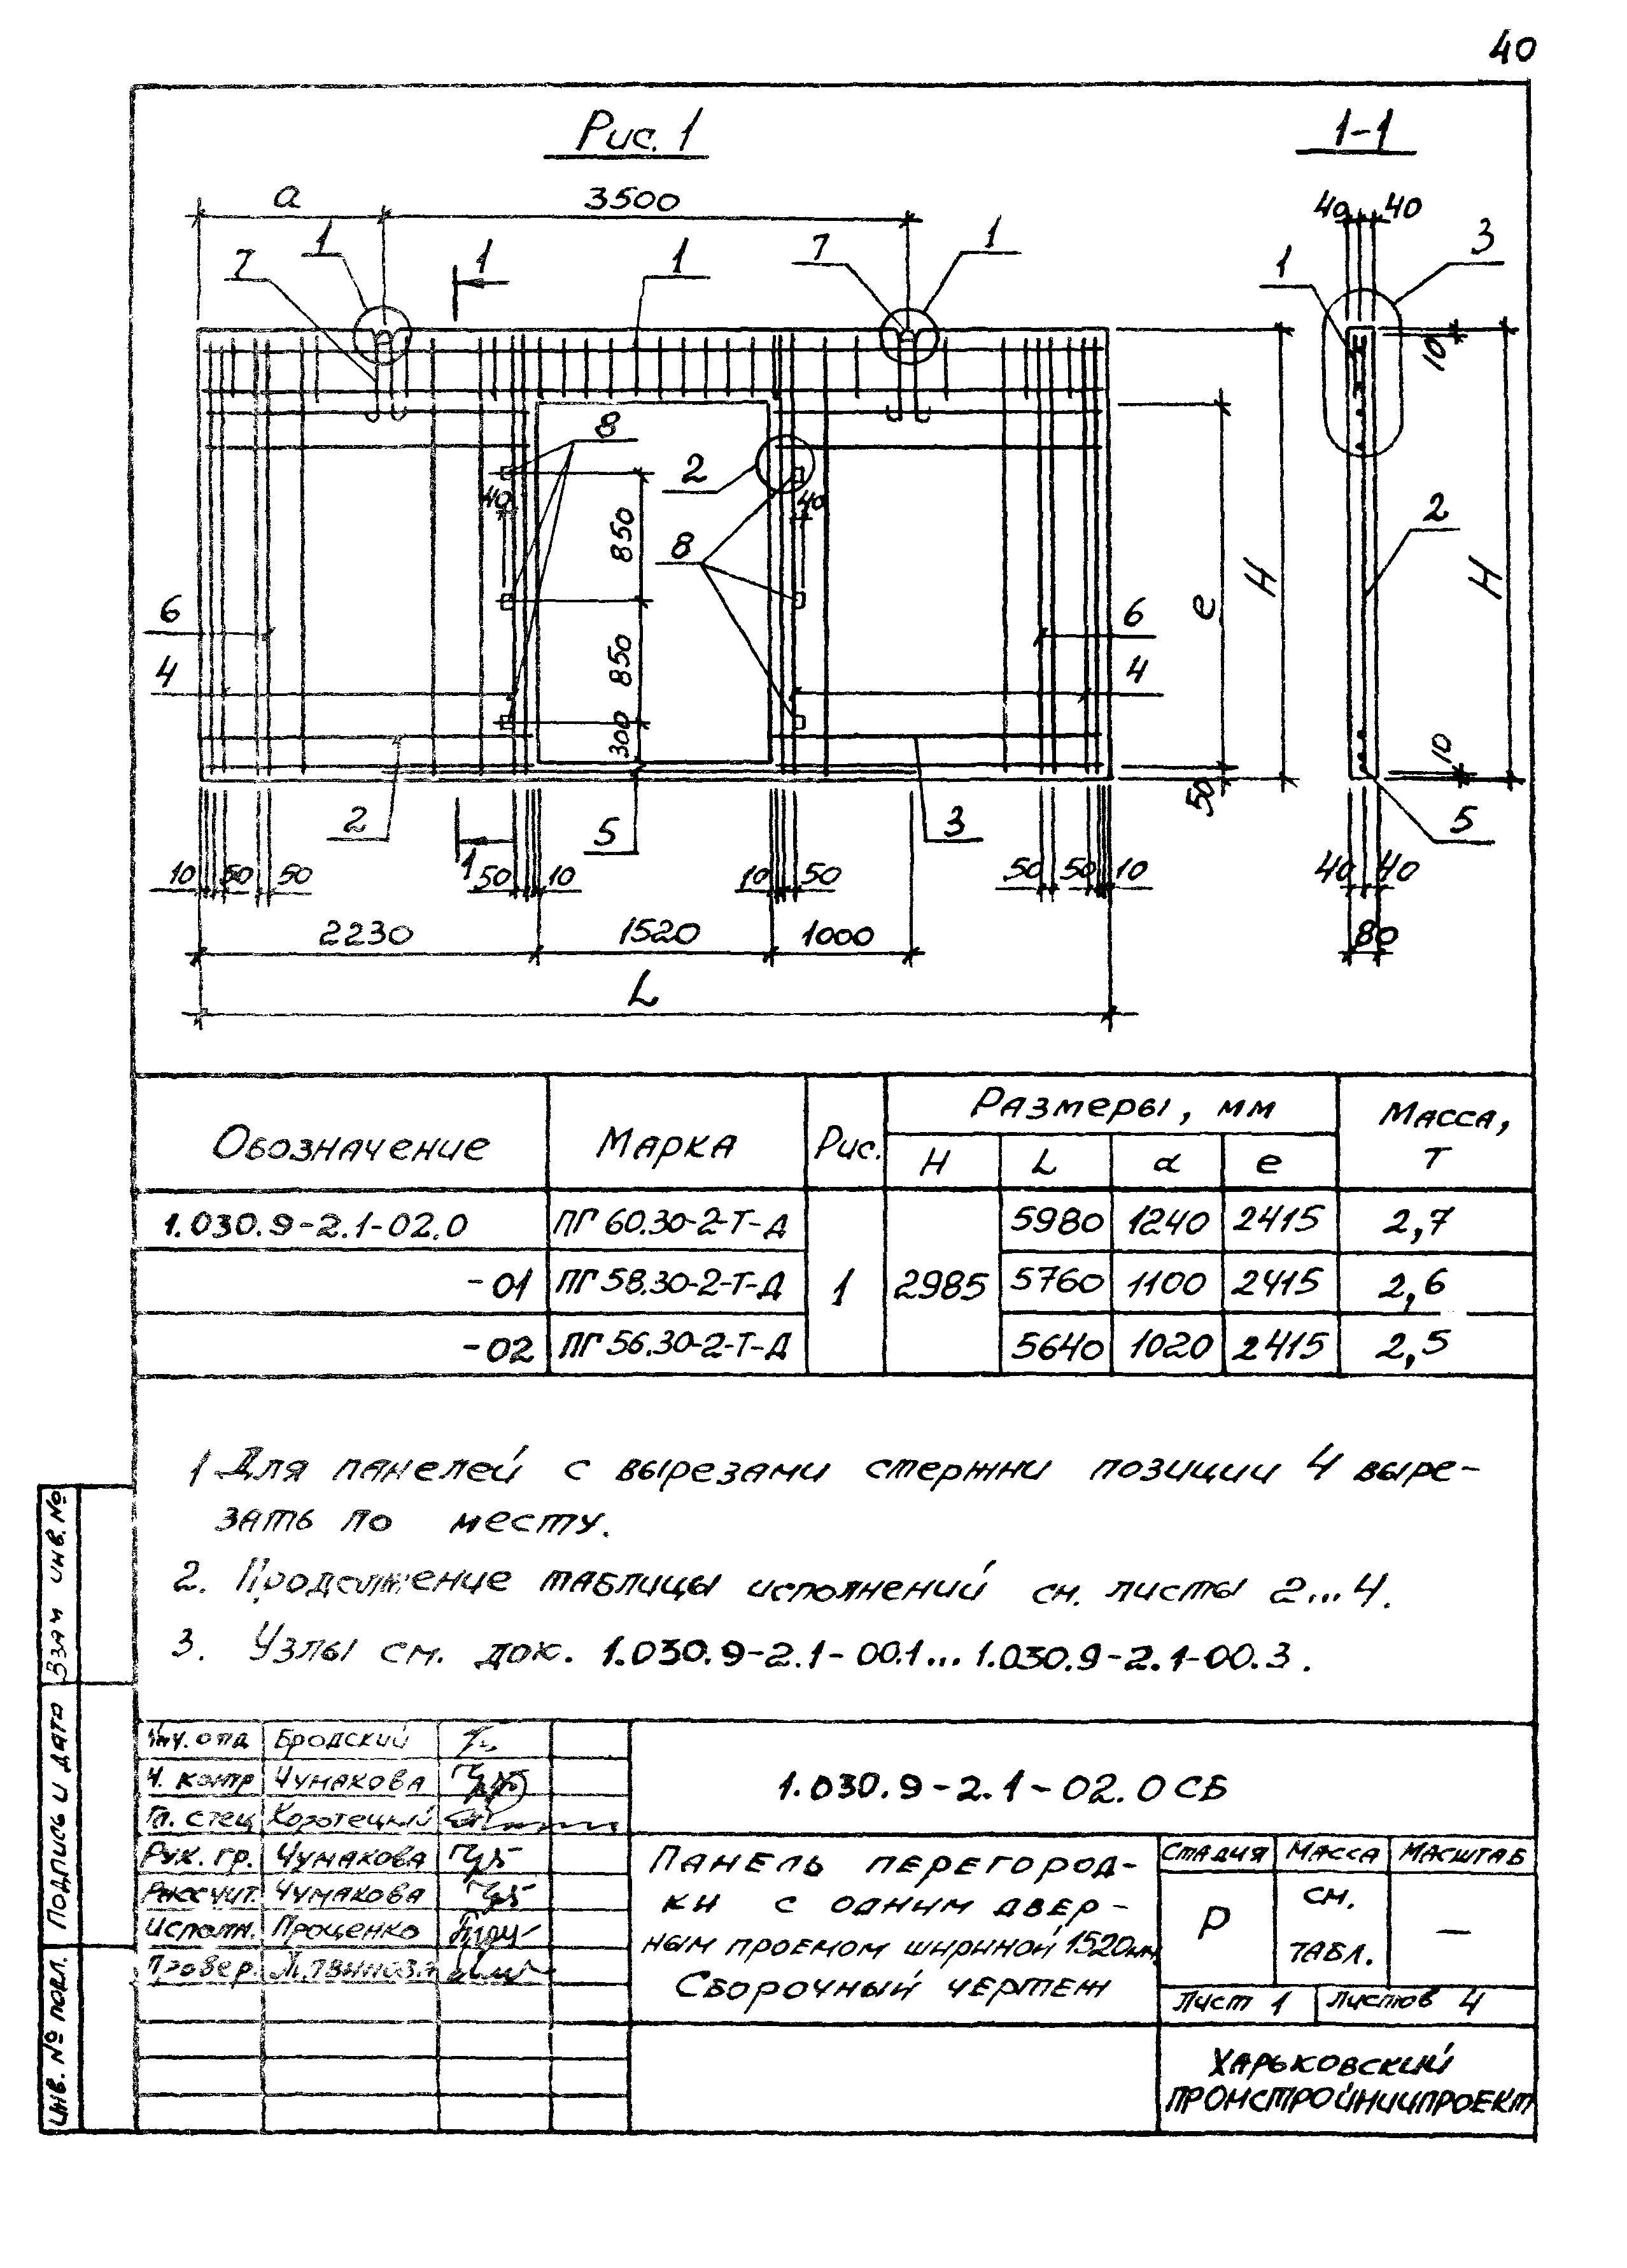 40
Рис. 1
1-1
а
3500
40
40
7
1
1
1
7
1
1
3
10
8
2
40
40
850
8
2
е
Н
Н
6
6
850
4
4
300
10
50
2
1
5
3
5
10
50
50
50
10
10
50
50
50
10
40
40
2230
1520
1000
80
L
Обозначение
Марка
Рис.
Размеры, мм
Масса, т
Н
L
а
е
1.030.9-2.1-02.0
ПГ 60.30-2-Т-Д
1
2985
5980
1240
2415
2,7
-01
ПГ 58.30-2-Т-Д
5760
1100
2415
2,6
-02
ПГ 56.30-2-Т-Д
5640
1020
2415
2,5
1 Для панелей с вырезами стержни позиции 4 выре-
зать по месту.
2. Продолжение таблицы исполнений см. листы 2...4.
3. Узлы см. док. 1.030.9-2.1-00.1... 1.030.9-2.1-00.3.
Взам инв. №
Подпись и дата
Инв. № подл.
Нач. отд Бродский
Н. контр Чумакова
Гл. спец Коротецкий
Рук. гр. Чумакова
Рассчит. Чумакова
Исполн. Проценко
Провер.
1.030.9-2.1-02.0 СБ
Панель перегород-
ки с одним двер-
ным проемом шириной 1520мм.
Сборочный чертеж
Стадия
Масса
Масштаб
Р
см.
табл.
—
Лист 1
Листов 4
Харьковский
ПромстройНИИпроект